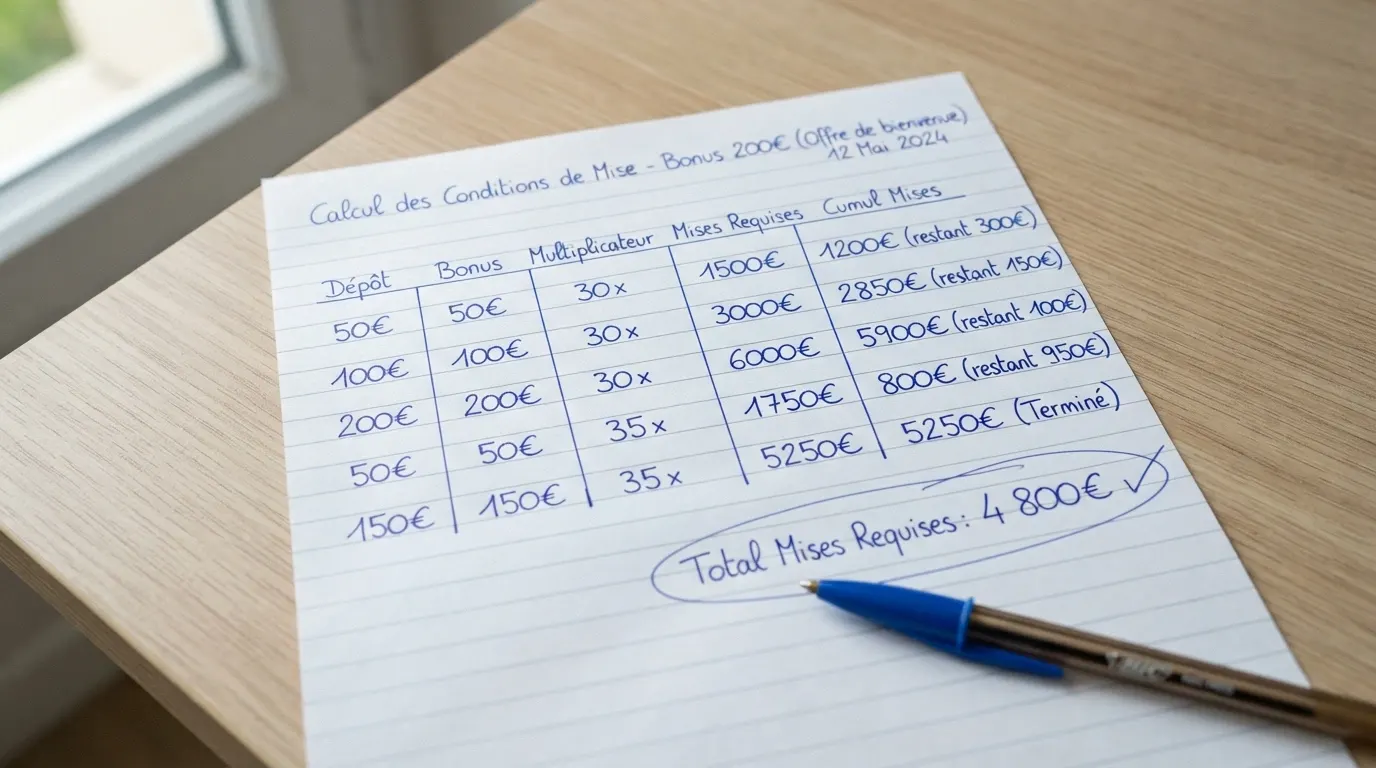 Calcul des Conditions de Mise - Bonus 200€ (Offre de bienvenue)
12 Mai 2024
Dépôt Bonus Multiplicateur Mises Requises Cumul Mises
50€ 50€ 30x 1500€ 1200€ (restant 300€)
100€ 100€ 30x 3000€ 2850€ (restant 150€)
200€ 200€ 30x 6000€ 5900€ (restant 100€)
50€ 50€ 35x 1750€ 800€ (restant 950€)
150€ 150€ 35x 5250€ 5250€ (Terminé)
Total Mises Requises: 4 800€ ✓